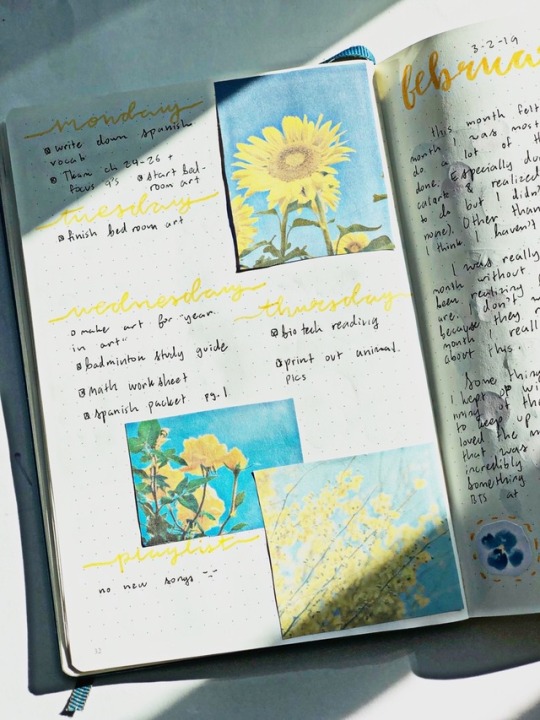 monday
write down spanish
vocab
Tkam ch 24-26 +
focus q's start bed-
room art
tuesday
finish bedroom art
wednesday
make art for "year
in art"
badminton study guide
math worksheet
spanish packet pg. 1
thursday
bio tech reading
print out animal
pics
playlist
no new songs
12
3-2-19
februa
this month felt
month I was most
do a lot of th
done. Especially du
& realized
to do but I didn't
none). Other than
I think haven't
I was really
month without
been realizing
are. don't w
because they
month I reall
about this.
Some thing
I kept up wi
tha
to keep up
loved the m
that was
incredibly
something
BTS at